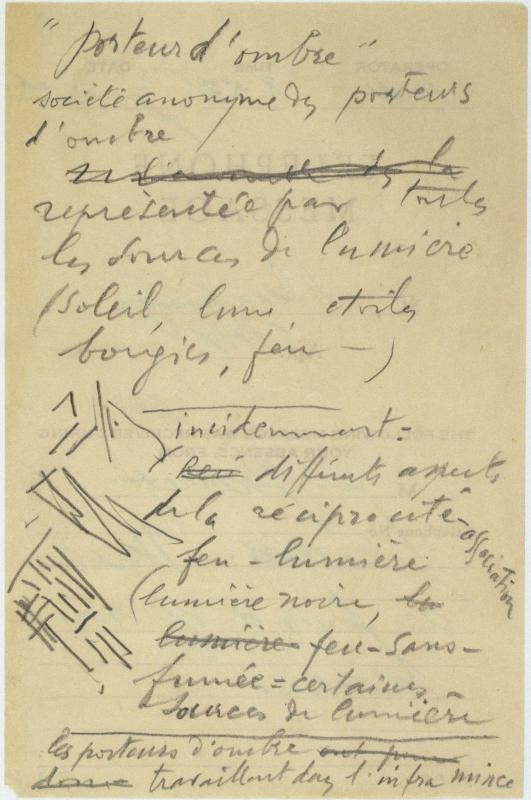 "porteur d'ombre"
société anonyme des porteurs
d'ombre
représentée par toutes
les sources de lumière
(soleil lune etoiles
bougies, feu —)
incidemment:
feu différents aspects
de la réciprocité - association
feu - lumiere
(lumière noire, la
lumière feu-sans-
fumée = certaines
sources de lumière
les porteurs d'ombre
travaillent dans l'infra mince
OPERATOR TIME DATE
TELEPHONE
MESSAGE